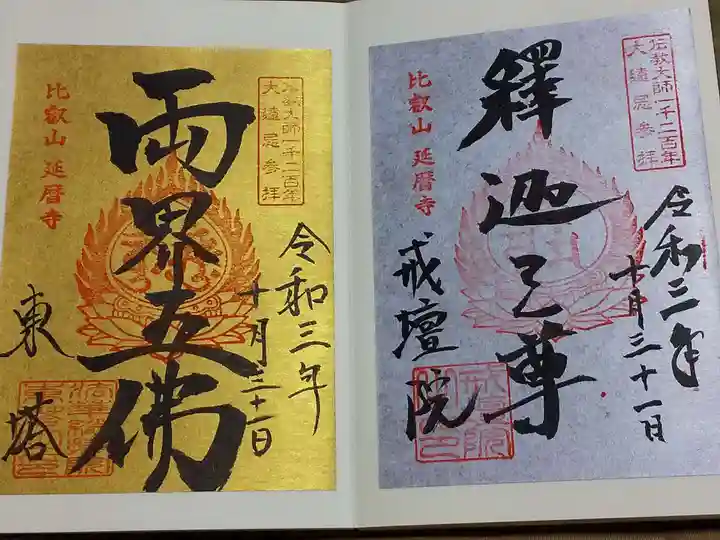 伝教大師一千二百年
大遠忌参拝
令和三年
十月三十一日
釋迦三尊
比叡山 延暦寺
戒壇院
伝教大師一千二百年
大遠忌参拝
令和三年
十月三十一日
両界五佛
比叡山 延暦寺
東塔